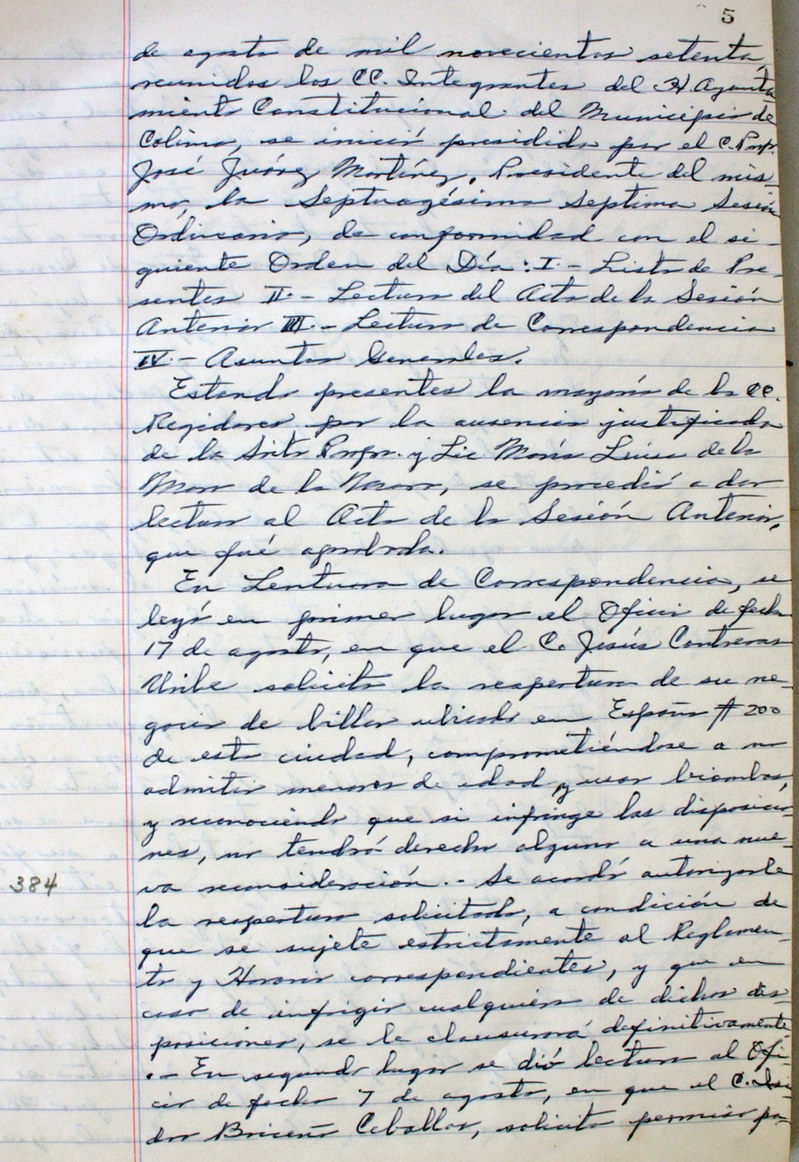 5
de agosto de mil novecientos setenta,
reunidos los CC. Integrantes del H. Ayunta
miento Constitucional del Municipio de
Colima, se inició presidida por el C. Profr.
José Juárez Martínez, Presidente del mis-
mo, la Septuagésima Septima Sesión
Ordinaria, de conformidad con el si-
guiente Orden del Día: I.- Lista de Pre-
sentes II.- Lectura del Acta de la Sesión
Anterior III.- Lectura de Correspondencia
IV.- Asuntos Generales.
Estando presentes la mayoría de los CC.
Regidores por la ausencia justificada
de la Srita Profr. y Lic María Luisa de la
Mora de la Mora, se procedió a dar
lectura al Acta de la Sesión Anterior,
que fué aprobada.
En Lentuara de Correspondencia, se
leyó en primer lugar el Oficio de fecha
17 de agosto, en que el C. Jesús Contreras
Uribe solicita la reapertura de su ne-
gocio de billar ubicado en España # 200
de esta ciudad, comprometiéndose a no
admitir menores de edad, y usar biombos,
y reconociendo que si infringe las disposicio
nes, no tendrá derecho alguno a una nue-
va reconsideración.- Se acordó autorizarle
384
la reapertura solicitada, a condición de
que se sujete estrictamente al Reglamen-
to y Horario correspondientes, y que en
caso de infrigir cualquiera de dichas dis-
posiciones, se le clausurará definitivamente
.- En segundo lugar se dió lectura al Ofi
cio de fecha 7 de agosto, en que el C. Isi
dro Briceño Ceballos, solicita permiso pa-